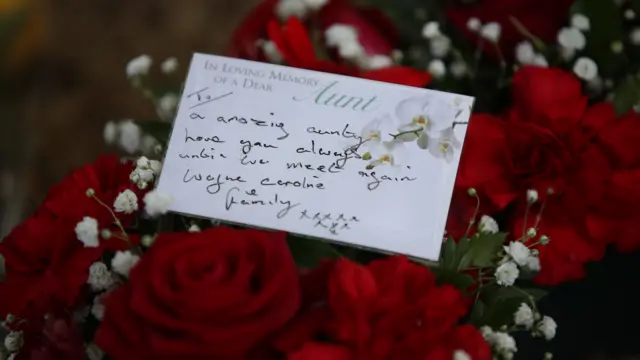 IN LOVING MEMORY
OF A DEAR Aunt
To
a amazig aunty
love you always
untie we meet again
Wayne caroline
& family xxxxx
xxx